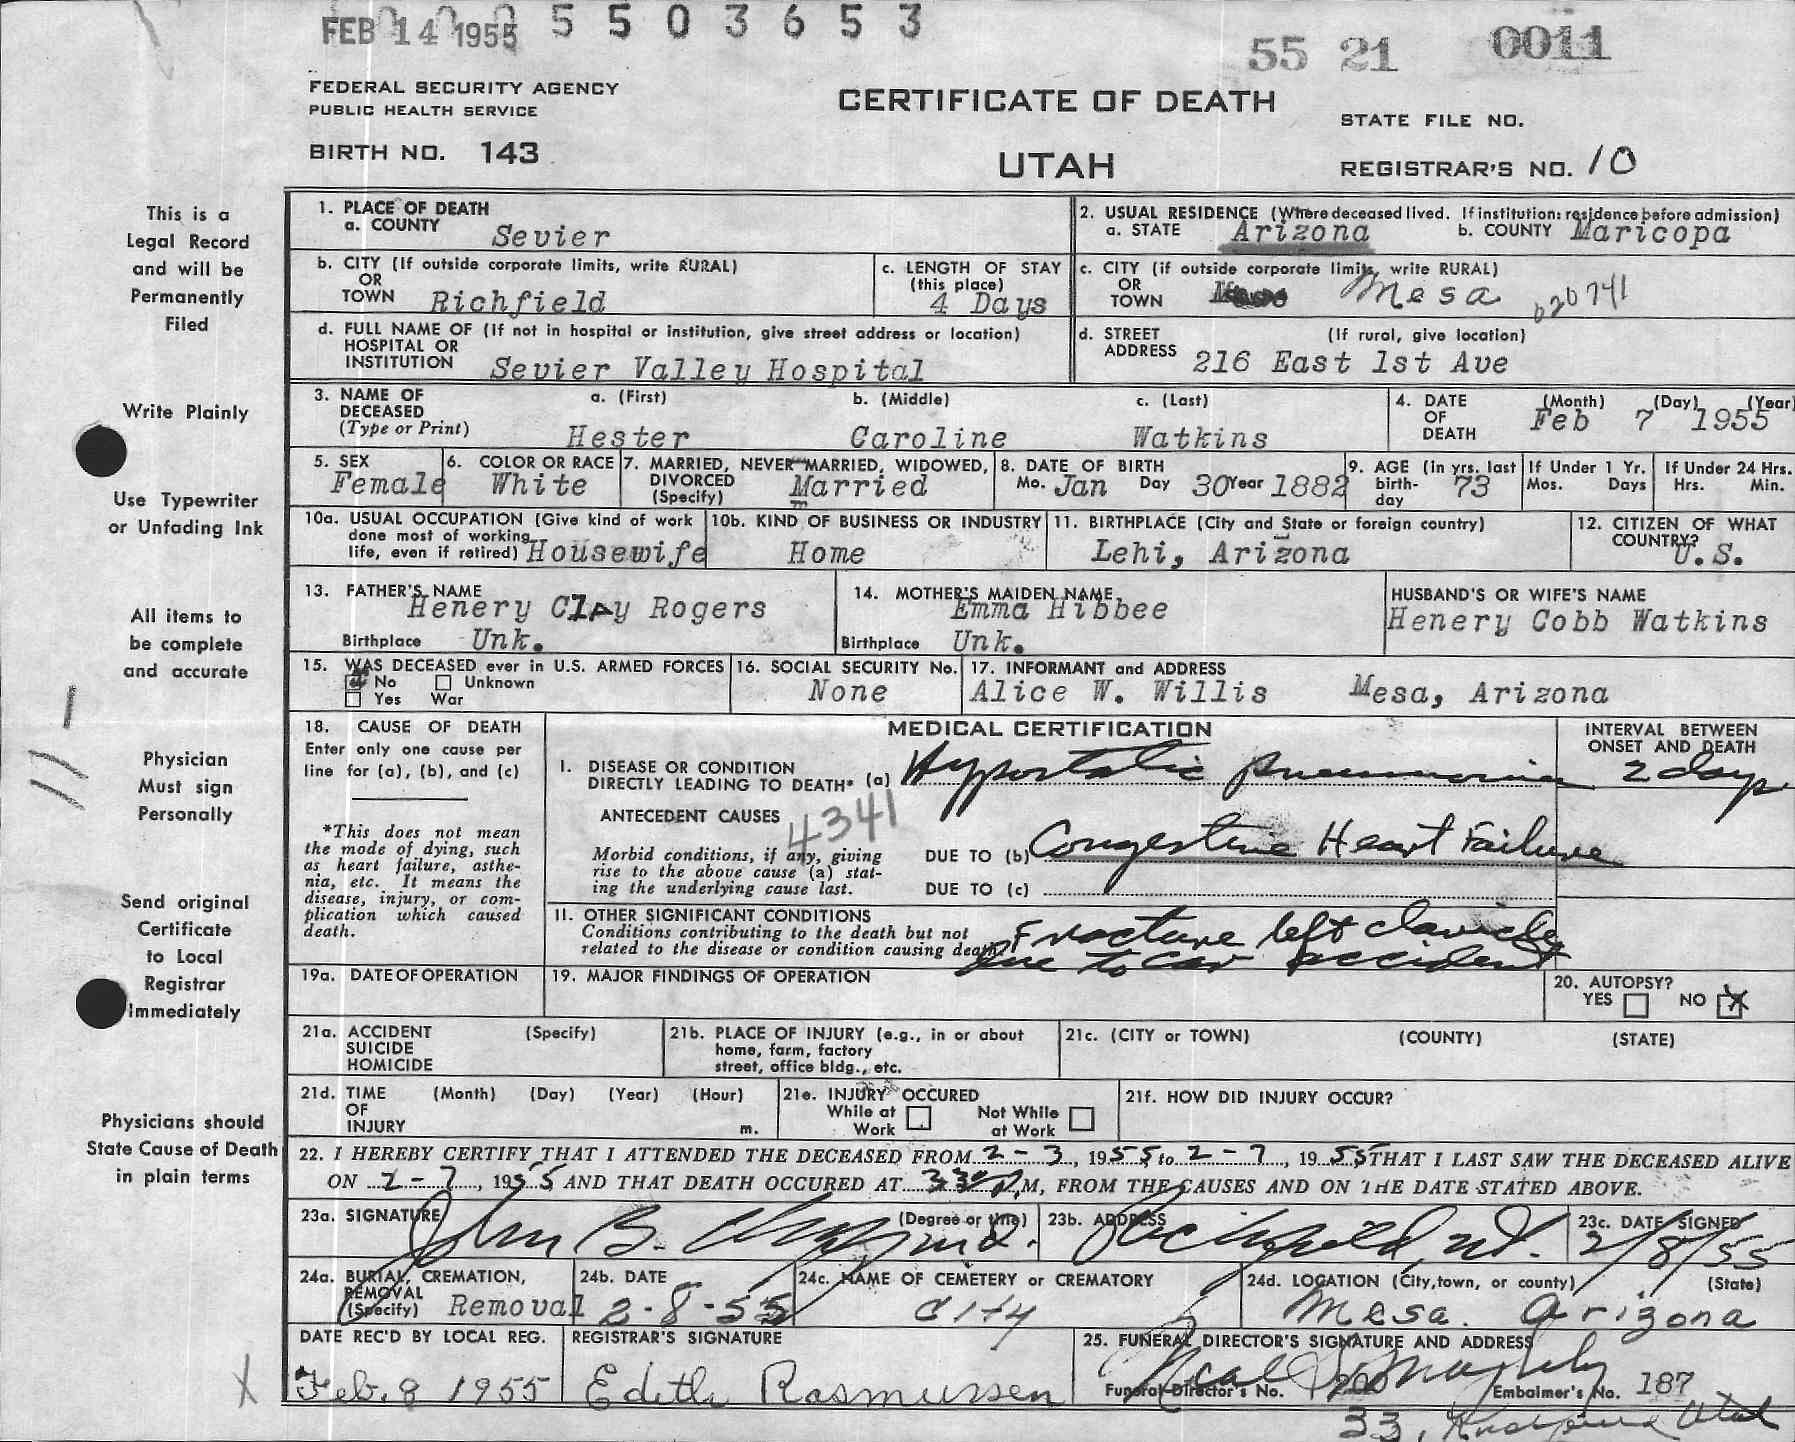 FEB 14 1955 5 5 0 3 6 5 3
55 21 0011
FEDERAL SECURITY AGENCY
PUBLIC HEALTH SERVICE
CERTIFICATE OF DEATH
STATE FILE NO.
BIRTH NO. 143
UTAH
REGISTRAR'S NO. 10
This is a
Legal Record
and will be
Permanently
Filed
Write Plainly
Use Typewriter
or Unfading Ink
All items to
be complete
and accurate
Physician
Must sign
Personally
Send original
Certificate
to Local
Registrar
Immediately
Physicians should
State Cause of Death
in plain terms
1. PLACE OF DEATH
a. COUNTY Sevier
2. USUAL RESIDENCE (Where deceased lived. If institution: residence before admission)
a. STATE Arizona b. COUNTY Maricopa
b. CITY (If outside corporate limits, write RURAL)
OR
TOWN Richfield
c. LENGTH OF STAY
(this place)
4 Days
c. CITY (if outside corporate limits, write RURAL)
OR
TOWN Mesa 020741
d. FULL NAME OF (If not in hospital or institution, give street address or location)
HOSPITAL OR
INSTITUTION Sevier Valley Hospital
d. STREET (If rural, give location)
ADDRESS 216 East 1st Ave
3. NAME OF
DECEASED
(Type or Print)
a. (First) b. (Middle) c. (Last)
Hester Caroline Watkins
4. DATE
OF
DEATH
(Month) (Day) (Year)
Feb 7 1955
5. SEX
Female
6. COLOR OR RACE
White
7. MARRIED, NEVER MARRIED, WIDOWED,
DIVORCED
(Specify) Married
8. DATE OF BIRTH
Mo. Jan Day 30 Year 1882
9. AGE (in yrs. last
birth-
day 73
If Under 1 Yr.
Mos. Days
If Under 24 Hrs.
Hrs. Min.
10a. USUAL OCCUPATION (Give kind of work
done most of working
life, even if retired) Housewife
10b. KIND OF BUSINESS OR INDUSTRY
Home
11. BIRTHPLACE (City and State or foreign country)
Lehi, Arizona
12. CITIZEN OF WHAT
COUNTRY?
U.S.
13. FATHER'S NAME
Henery Clay Rogers
Birthplace Unk.
14. MOTHER'S MAIDEN NAME
Emma Hibbee
Birthplace Unk.
HUSBAND'S OR WIFE'S NAME
Henery Cobb Watkins
15. WAS DECEASED ever in U.S. ARMED FORCES
No Unknown
Yes War
16. SOCIAL SECURITY No.
None
17. INFORMANT and ADDRESS
Alice W. Willis Mesa, Arizona
18. CAUSE OF DEATH
Enter only one cause per
line for (a), (b), and (c)
*This does not mean
the mode of dying, such
as heart failure, asthe-
nia, etc. It means the
disease, injury, or com-
plication which caused
death.
MEDICAL CERTIFICATION
INTERVAL BETWEEN
ONSET AND DEATH
I. DISEASE OR CONDITION
DIRECTLY LEADING TO DEATH* (a) Hypostatic pneumonia 2 days
ANTECEDENT CAUSES 4341
Morbid conditions, if any, giving
rise to the above cause (a) stat-
ing the underlying cause last.
DUE TO (b) Congestive Heart Failure
DUE TO (c)
II. OTHER SIGNIFICANT CONDITIONS
Conditions contributing to the death but not
related to the disease or condition causing death.
Fracture left clavicle
due to car accident
19a. DATE OF OPERATION
19. MAJOR FINDINGS OF OPERATION
20. AUTOPSY?
YES NO X
21a. ACCIDENT (Specify)
SUICIDE
HOMICIDE
21b. PLACE OF INJURY (e.g., in or about
home, farm, factory
street, office bldg., etc.
21c. (CITY or TOWN) (COUNTY) (STATE)
21d. TIME (Month) (Day) (Year) (Hour)
OF
INJURY m.
21e. INJURY OCCURED
While at Work Not While at Work
21f. HOW DID INJURY OCCUR?
22. I HEREBY CERTIFY THAT I ATTENDED THE DECEASED FROM 2-3, 1955 to 2-7, 1955 THAT I LAST SAW THE DECEASED ALIVE
ON 2-7, 1955 AND THAT DEATH OCCURED AT 330 P.M, FROM THE CAUSES AND ON THE DATE STATED ABOVE.
23a. SIGNATURE (Degree or title)
John B. M.D.
23b. ADDRESS
Richfield Ut.
23c. DATE SIGNED
2/8/55
24a. BURIAL, CREMATION,
REMOVAL
(Specify) Removal
24b. DATE
2-8-55
24c. NAME OF CEMETERY or CREMATORY
City
24d. LOCATION (City, town, or county) (State)
Mesa. Arizona
DATE REC'D BY LOCAL REG.
Feb. 8 1955
REGISTRAR'S SIGNATURE
Edith Rasmussen
25. FUNERAL DIRECTOR'S SIGNATURE AND ADDRESS
Neal
Funeral Director's No. Embalmer's No. 187
33, Utah